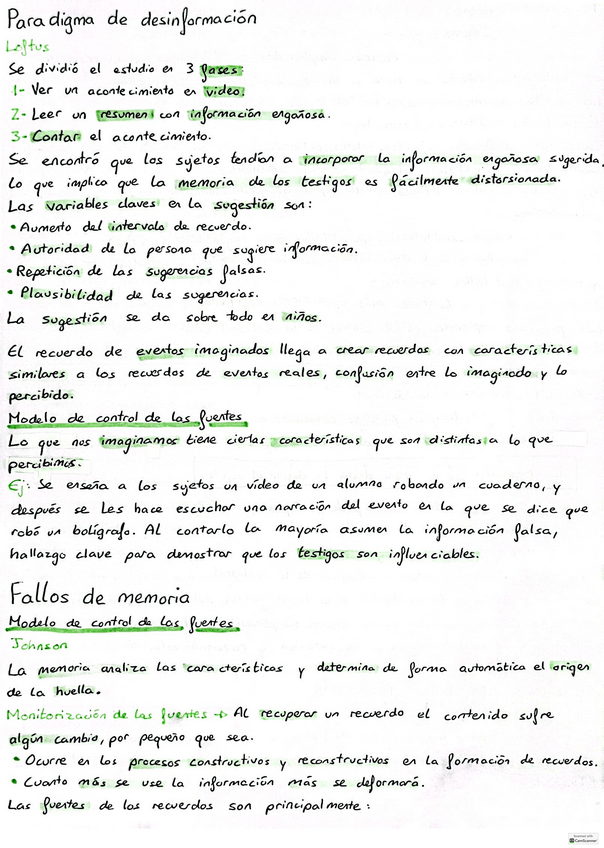 Paradigma de desinformación
Loftus
Se dividió el estudio en 3 fases:
1- Ver un acontecimiento en vídeo.
2- Leer un resumen con información engañosa.
3- Contar el acontecimiento.
Se encontró que los sujetos tendían a incorporar la información engañosa sugerida,
lo que implica que la memoria de los testigos es fácilmente distorsionada.
Las variables claves en la sugestión son:
• Aumento del intervalo de recuerdo.
• Autoridad de la persona que sugiere información.
• Repetición de las sugerencias falsas.
• Plausibilidad de las sugerencias.
La sugestión se da sobre todo en niños.
El recuerdo de eventos imaginados llega a crear recuerdos con características
similares a los recuerdos de eventos reales, confusión entre lo imaginado y lo
percibido.
Modelo de control de las fuentes
Lo que nos imaginamos tiene ciertas características que son distintas a lo que
percibimos.
Ej: Se enseña a los sujetos un vídeo de un alumno robando un cuaderno, y
después se les hace escuchar una narración del evento en la que se dice que
robó un bolígrafo. Al contarlo la mayoría asumen la información falsa,
hallazgo clave para demostrar que los testigos son influenciables.
Fallos de memoria
Modelo de control de las fuentes
Johnson
La memoria analiza las características y determina de forma automática el origen
de la huella.
Monitorización de las fuentes → Al recuperar un recuerdo el contenido sufre
algún cambio, por pequeño que sea.
• Ocurre en los procesos constructivos y reconstructivos en la formación de recuerdos.
• Cuanto más se use la información más se deformará.
Las fuentes de los recuerdos son principalmente:
Scanned with
CamScanner